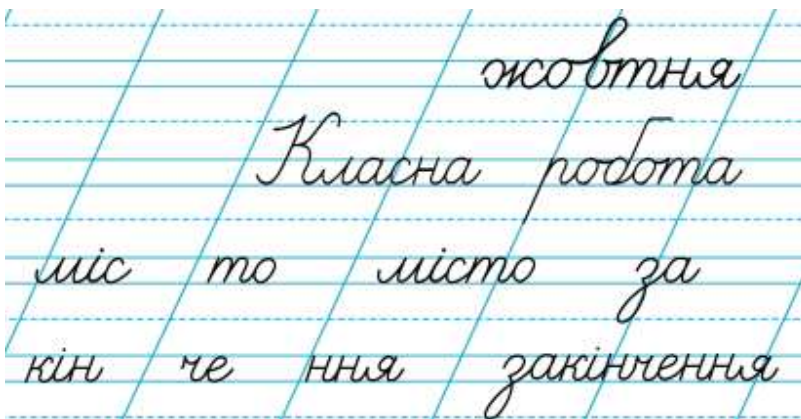 жовтня
Класна робота
міс то місто за
кін че ння закінчення